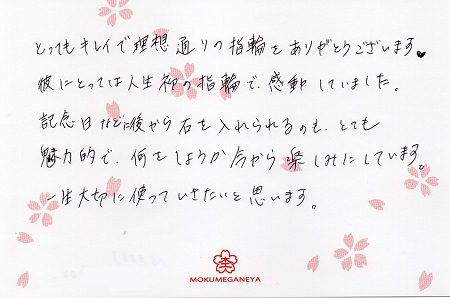 とってもキレイで理想通りの指輪をありがとうございます♥
彼にとっては人生初の指輪で、感動していました。
記念日などに後から石を入れられるのも、とても
魅力的で、何をしようか今から楽しみにしています。
一生大切に使っていきたいと思います。
MOKUMEGANEYA